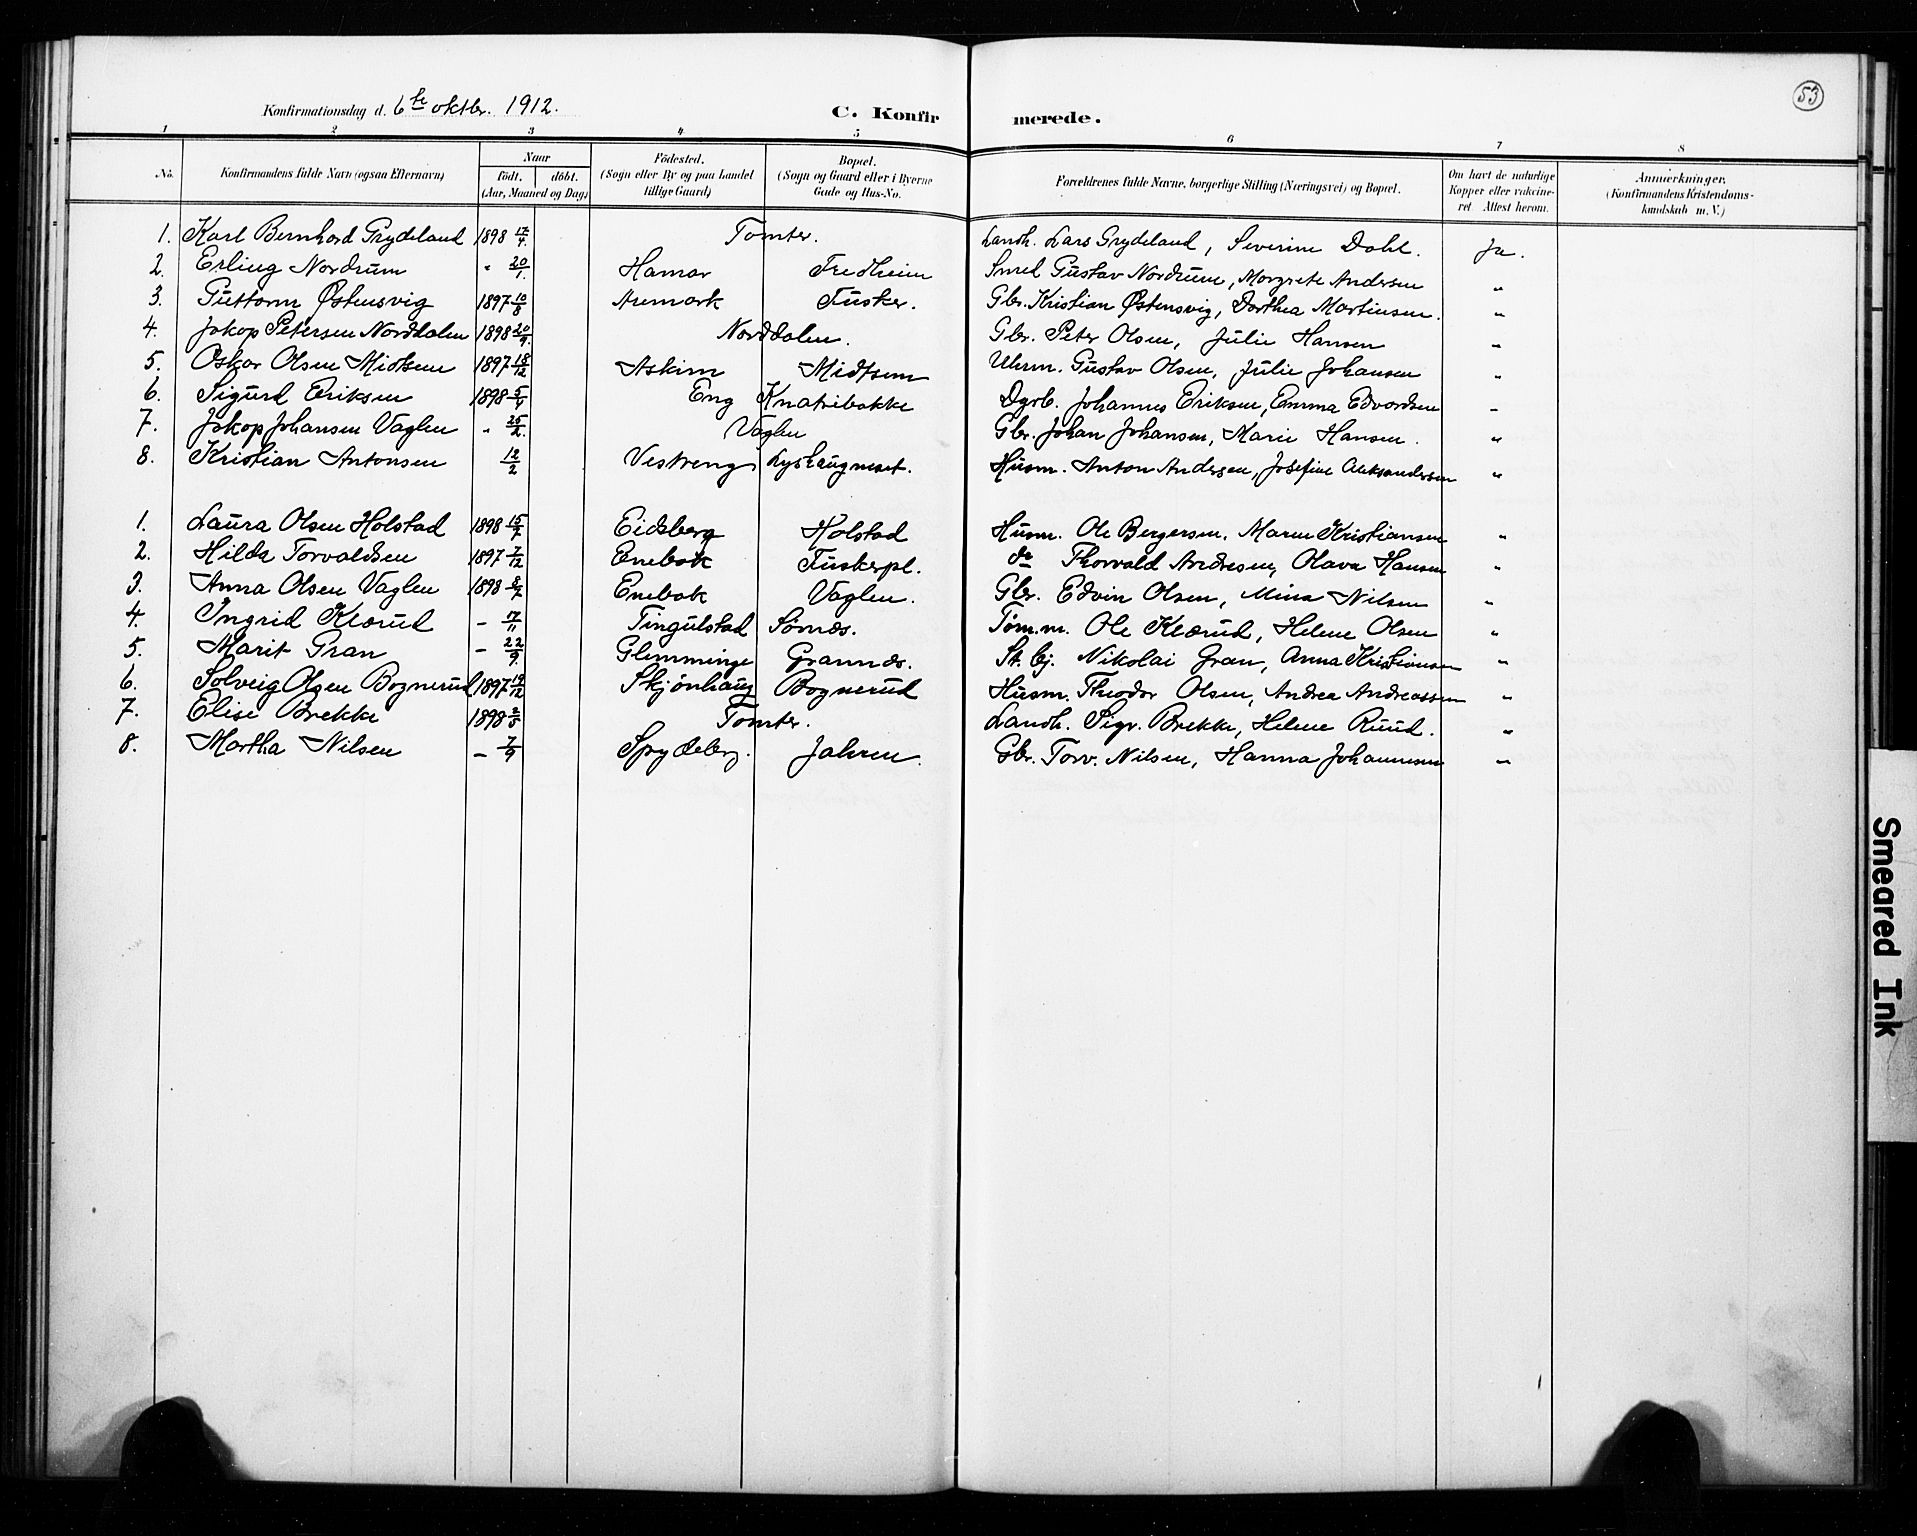 53
Konfirmationsdag d. 6te oktbr. 1912.
C. Konfir merede.
1 2 3 4 5 6 7 8
No. Konfirmandens fulde Navn (ogsaa Efternavn) Naar født. døbt. (Aar, Maaned og Dag) Fødested. (Sogn eller By og paa Landet tillige Gaard) Bopæl. (Sogn og Gaard eller i Byerne Gade og Hus-No. Forældrenes fulde Navne, borgerlige Stilling (Næringsvei) og Bopæl. Om havt de naturlige Kopper eller vakcineret. Attest herom. Anmerkninger, (Konfirmandens Kristendomskundskab m. V.)
1. Karl Bernhard Grydeland 1898 17/4. Tomter. Landh. Lars Grydeland, Severine Dahl. Ja.
2. Erling Nordrum " 20/1. Hamar Fredheim Smed Gustav Nordrum, Margrete Andersen "
3. Guttorm Østensvig 1897 10/8 Aremark Fusker. Gbr. Kristian Østensvig, Dorthea Martinsen. "
4. Jakop Petersen Norddalen 1898 20/9. Norddalen. Gbr. Peter Olsen, Julie Hansen "
5. Oskar Olsen Midtsem 1897 18/12 Askim Midtsem Uhrm. Gustav Olsen, Julie Johansen "
6. Sigurd Eriksen 1898 5/4 Eng Knatribakke Dgrb. Johannes Eriksen, Emma Edvardsen "
7. Jakop Johansen Vaglen " 25/2. Vaglen Gbr. Johan Johansen, Marie Hansen. "
8. Kristian Antonsen 12/2 Vestreng Lyshaugneset. Husm. Anton Andersen, Josefine Aleksandersen "
1. Laura Olsen Holstad 1898 15/7 Eidsberg Holstad Husm. Ole Bergersen, Maren Kristiansen "
2. Hilda Torvaldsen 1897 7/12 Enebak Fuskerpl. do Thorvald Andresen, Olava Hansen "
3. Anna Olsen Vaglen 1898 8/7 Enebak Vaglen. Gbr. Edvin Olsen, Mina Nilsen "
4. Ingrid Klærud – 17/11 Tingulstad Sømds. Tøm.m. Ole Klærud, Helene Olsen "
5. Marit Gran – 22/9. Glemminge Grannds. St. bj. Nikolai Gran, Anna Kristiansen "
6. Solveig Olsen Bognerud 1897 19/12 Skjønhaug Bognerud Husm. Theodor Olsen, Andrea Andreassen "
7. Elise Brekke 1898 2/5 Tomter. Landh. Sigv. Brekke, Helene Ruud. "
8. Martha Nilsen – 7/9 Spydeberg. Jahren. Gbr. Torv. Nilsen, Hanna Johannesen "
Smeared Ink